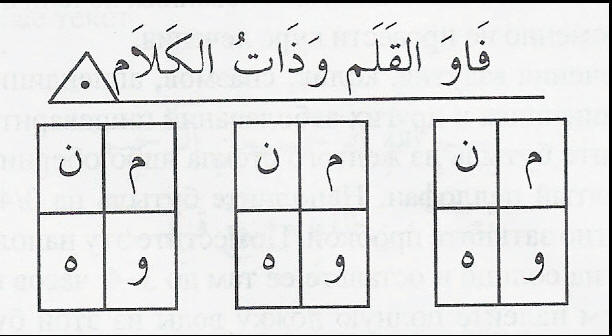 فَاو القَلَم وذَاتُ الكَلَامِ ه
م ن م ن م ن
و ه و ه و ه